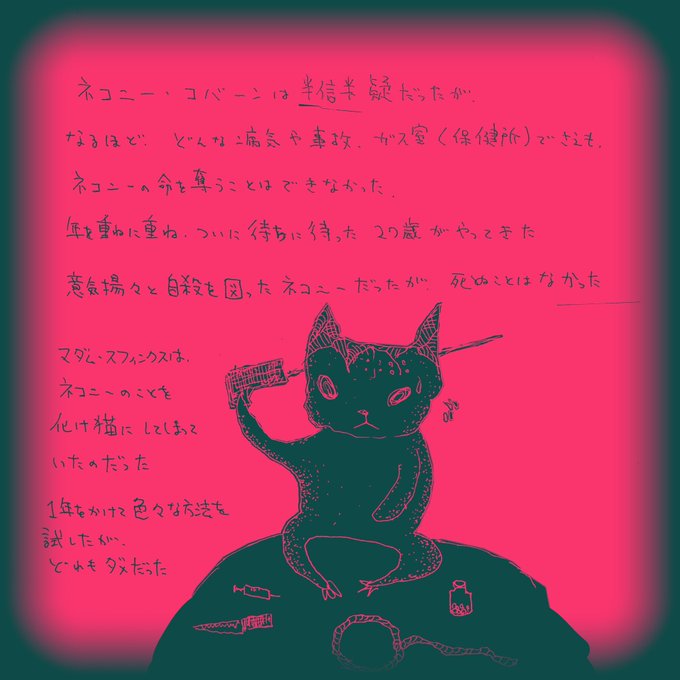 ネコニー・コバーンは半信半疑だったが、
なるほど、どんな病気や事故、ガス室(保健所)でさえも、
ネコニーの命を奪うことはできなかった、
年を重ねに重ね、ついに待ちに待った27歳がやってきた
意気揚々と自殺を図ったネコニーだったが、死ぬことはなかった
マダム・スフィンクスは、
ネコニーのことを
化け猫にしてしまって
いたのだった
1年をかけて色々な方法を
試したが、
どれもダメだった